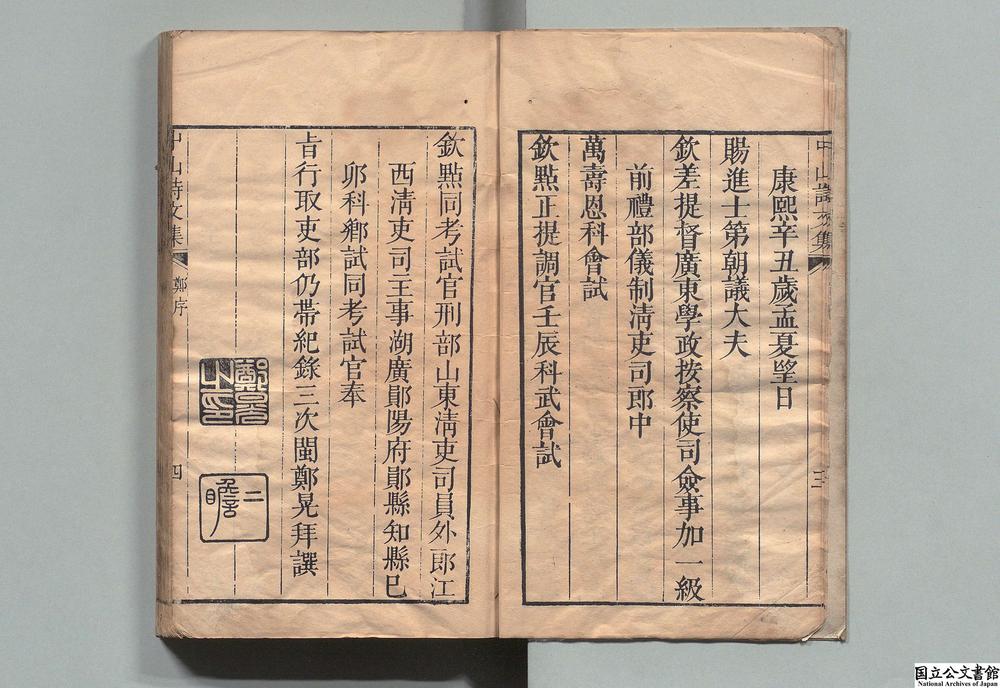 中山詩文集
三
康熙辛丑歲孟夏望日
賜進士第朝議大夫
欽差提督廣東學政按察使司僉事加一級
前禮部儀制淸吏司郎中
萬壽恩科會試
欽點正提調官壬辰科武會試
欽點同考試官刑部山東淸吏司員外郎江
西淸吏司主事湖廣鄖陽府鄖縣知縣巳
卯科鄉試同考試官奉
旨行取吏部仍帶紀錄三次閩鄭晃拜譔
鄭晃之印
二瞻
中山詩文集
鄭序
四
国立公文書館
National Archives of Japan